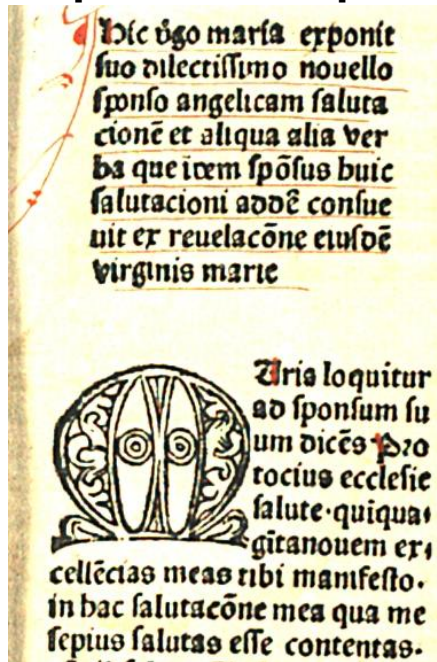 Hic v̄go maria exponit
suo dilectissimo nouello
sponso angelicam saluta
cionē et aliqua alia ver
ba que idem spōsus huic
salutacioni addē consue
uit ex reuelacōne eiusdē
virginis marie
M
Aria loquitur
ad sponsum su
um dicēs Pro
tocius ecclesie
salute·quiqua
gītanouem ex
cellēcias meas tibi manifesto.
in hac salutacōne mea qua me
sepius salutas esse contentas.